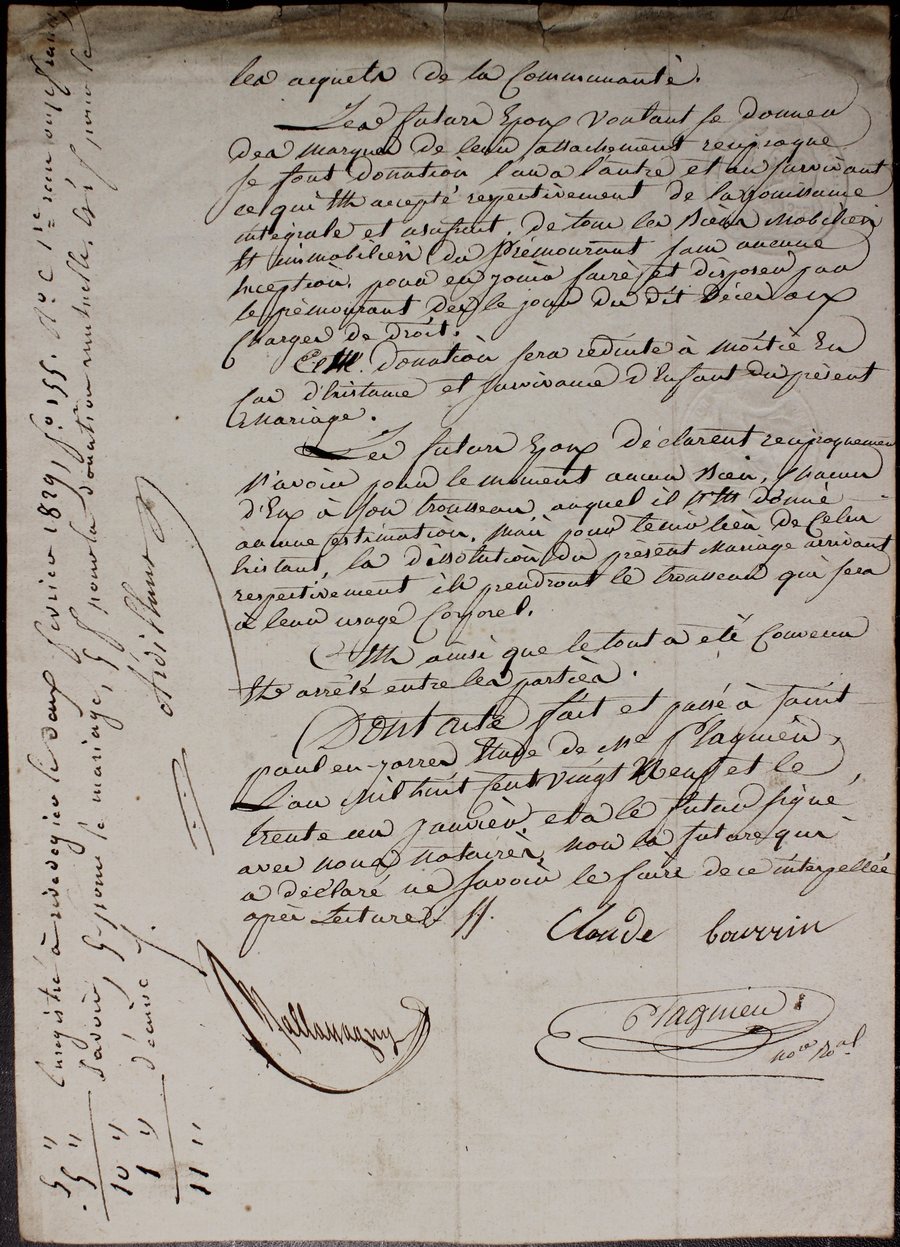 les acquets de la Communauté.
Les futurs Epoux voulant se donner
des marques de leur attachement réciproque
se font donation l'un à l'autre et au survivant
ce qui est accepté respectivement de la jouissance
intégrale et usufruit, de tous les Biens Mobiliers
Et immobiliers du Prémourant sans aucune
Exception, pour en jouir faire et disposer par
le prémourant dès le jour du dit Décès aux
Charges de droit.
Cette donation sera réduite à moitié En
cas d'Existance et survivance d'Enfant du présent
Mariage.
Les futurs Epoux déclarent réciproquement
n'avoir pour le moment aucun Bien, chacun
d'Eux à son trousseau auquel il n'est donné
aucune estimation, mais pour tenir lieu de Celui
Existant, la dissolution du présent Mariage arrivant
respectivement ils prendront le trousseau qui sera
à leur usage Corporel.
C'est ainsi que le tout a été Convenu
Et arrêté entre les parties.
Dont acte fait et passé à Saint
paul-en-jarrez Etude de Me Plagnieu,
L'an Mil huit Cent Vingt Neuf et le
trente un Janvier, et a le futur signé
avec nous notaires, non la future qui
a déclaré ne savoir le faire de ce interpellée
après Lectures //.
Claude bourrin
Mallassagny
Plagnieu
nore Roal
Enregistré à rivedegier le deux février 1829, fo 155. Ro C 1re reçu onze francs
Savoir, 5 f pour le mariage, 5 f pour la donation mutuelle, et 1 f pour le
décime
5 "
5 "
10 "
1 "
11 "